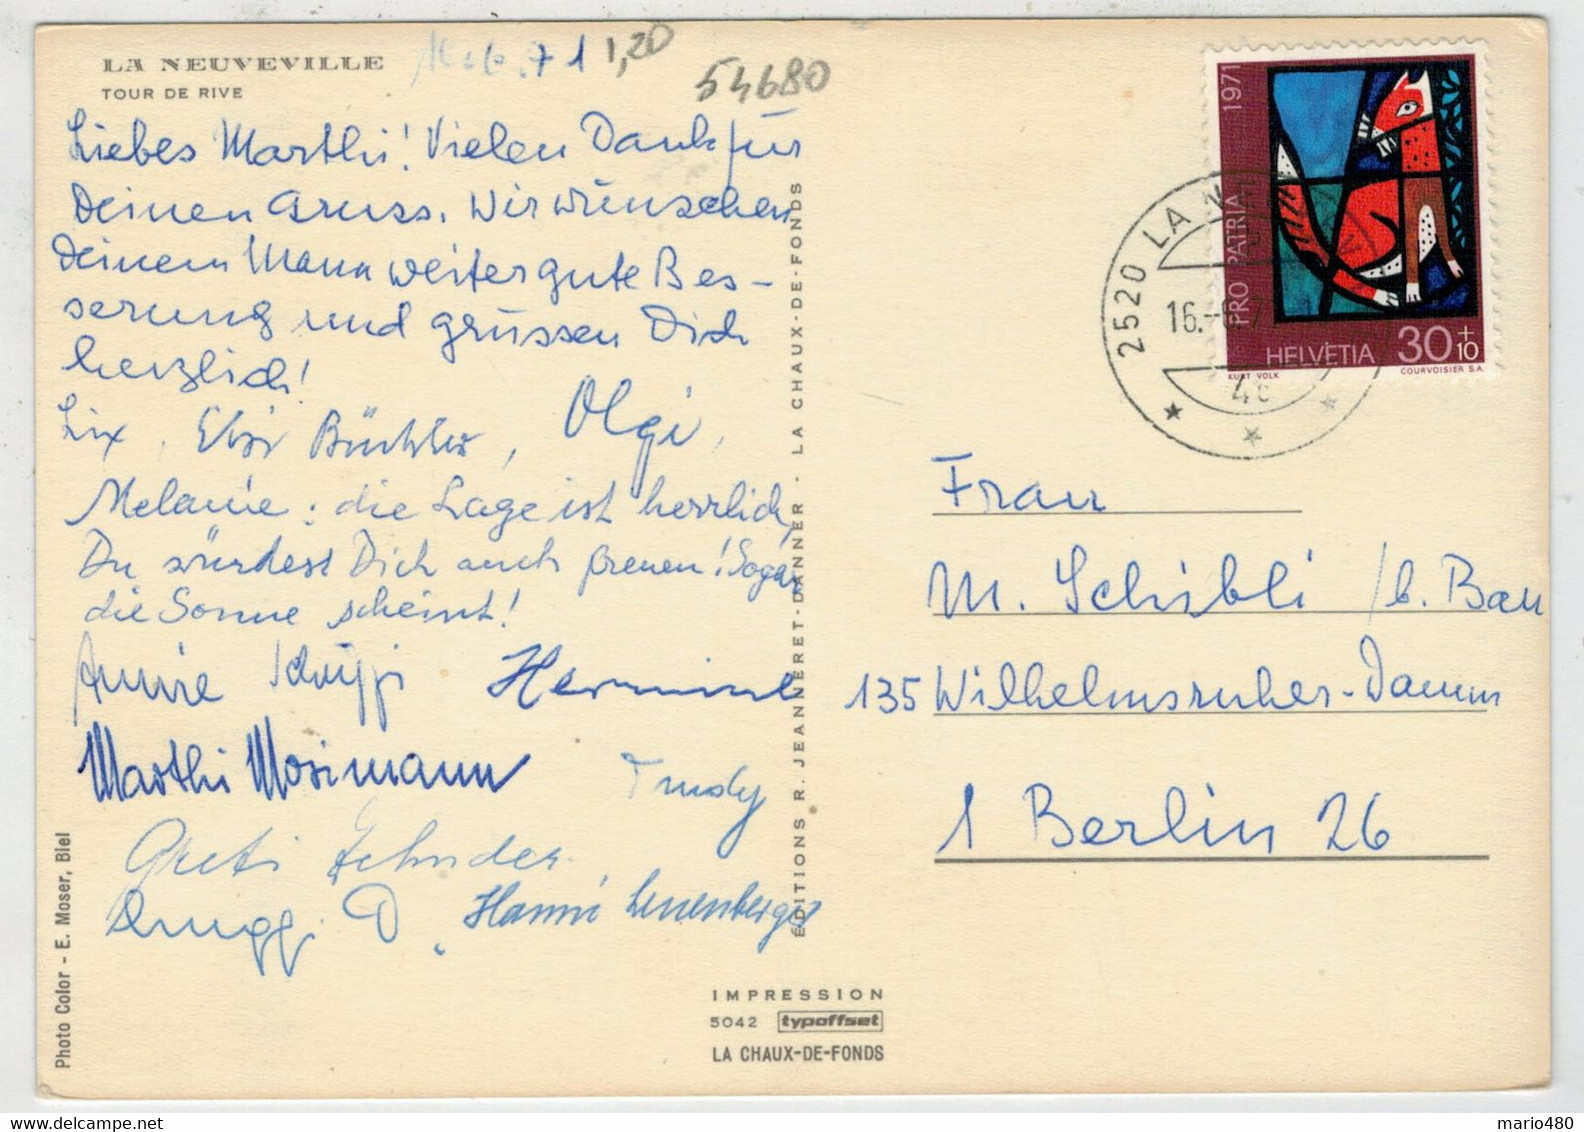 LA NEUVEVILLE
TOUR DE RIVE
16.6.71
1,20
54680
Liebes Marthi! Vielen Dank für
Deinen Gruss. Wir wünschen
Deinem Mann weiter gute Bes-
serung und grüssen Dich
herzlich!
Lix, Elsi Büchler, Olgi,
Melanie: die Lage ist herrlich,
Du würdest Dich auch freuen! Sogar
die Sonne scheint!
Annie Schüpp Hermine
Marthi Mosimann Trudy
Greti Zehnder
D, Hanni Leuenberger
Photo Color - E. Moser, Biel
ÉDITIONS R. JEANNERET-DANNER · LA CHAUX-DE-FONDS
IMPRESSION
5042 typoffset
LA CHAUX-DE-FONDS
PRO PATRIA 1971
HELVETIA 30+10
KURT VOLK COURVOISIER S.A.
2520 LA
16.-6.7
Frau
M. Schibli /b. Bau
135 Wilhelmsruher-Damm
1 Berlin 26
mario480